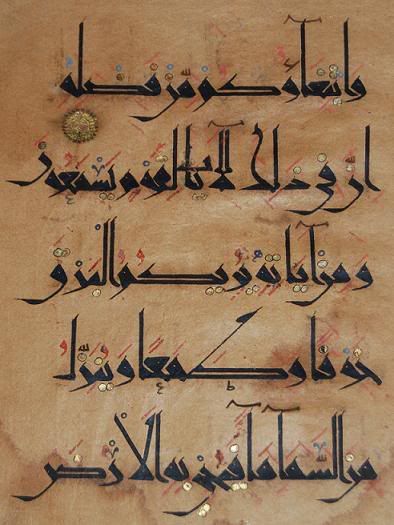 وابتغاؤكم من فضله
ان في ذلك لآيات لقوم يسمعون
ومن آياته يريكم البرق
خوفا وطمعا وينزل
من السمآء مآء فيحي به الارض